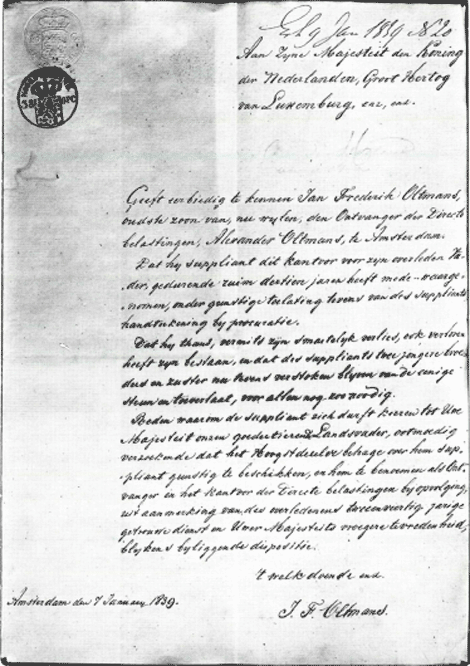 Exh 9 Jan 1839 No 20
Aan Zyne Majesteit den Koning
der Nederlanden, Groot Hertog
van Luxemburg, enz, enz.
Geeft eerbiedig te kennen Jan Frederik Oltmans,
oudste zoon van, nu wylen, den Ontvanger der Directe
belastingen, Alexander Oltmans, te Amsterdam.
Dat hy suppliant dit kantoor voor zyn overleden Va-
der, gedurende ruim dertien jaren heeft mede-waarge-
nomen, onder gunstige toelating tevens van des suppliants
handtekening by procuratie.
Dat hy thans, vermits zyn smartelyk verlies, ook verloren
heeft zyn bestaan, en dat des suppliants twee jongere broe-
ders en zuster nu tevens verstoken blyven van de eenige
steun en toeverlaat, voor allen nog zoo noodig.
Reden waarom de suppliant zich durft keeren tot Uwe
Majesteit onzen goedertieren Landsvader, ootmoedig
verzoekende dat het Hoogstdezelve behage over hem sup-
pliant gunstig te beschikken, en hem te benoemen als Ont-
vanger in het kantoor der Directe belastingen by opvolging,
uit aanmerking van des overledenens tweeenveertig jarige
getrouwe dienst en Uwer Majesteits vroegere tevredenheid,
blykens byliggende dispositie.
't welk doende enz.
Amsterdam den 7 January 1839.
J. F. Oltmans.